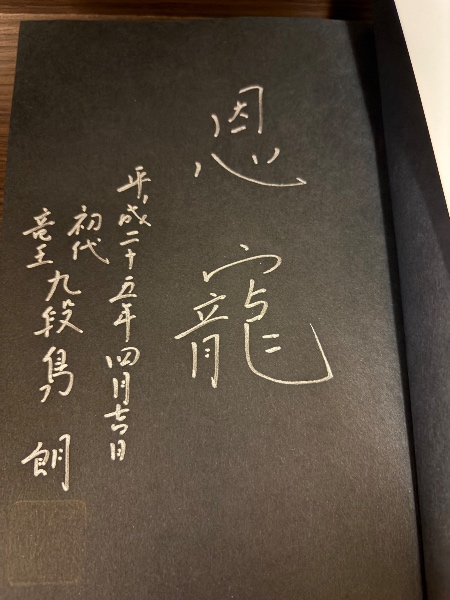 恩寵
平成二十五年四月吉日
初代
竜王九段島 朗